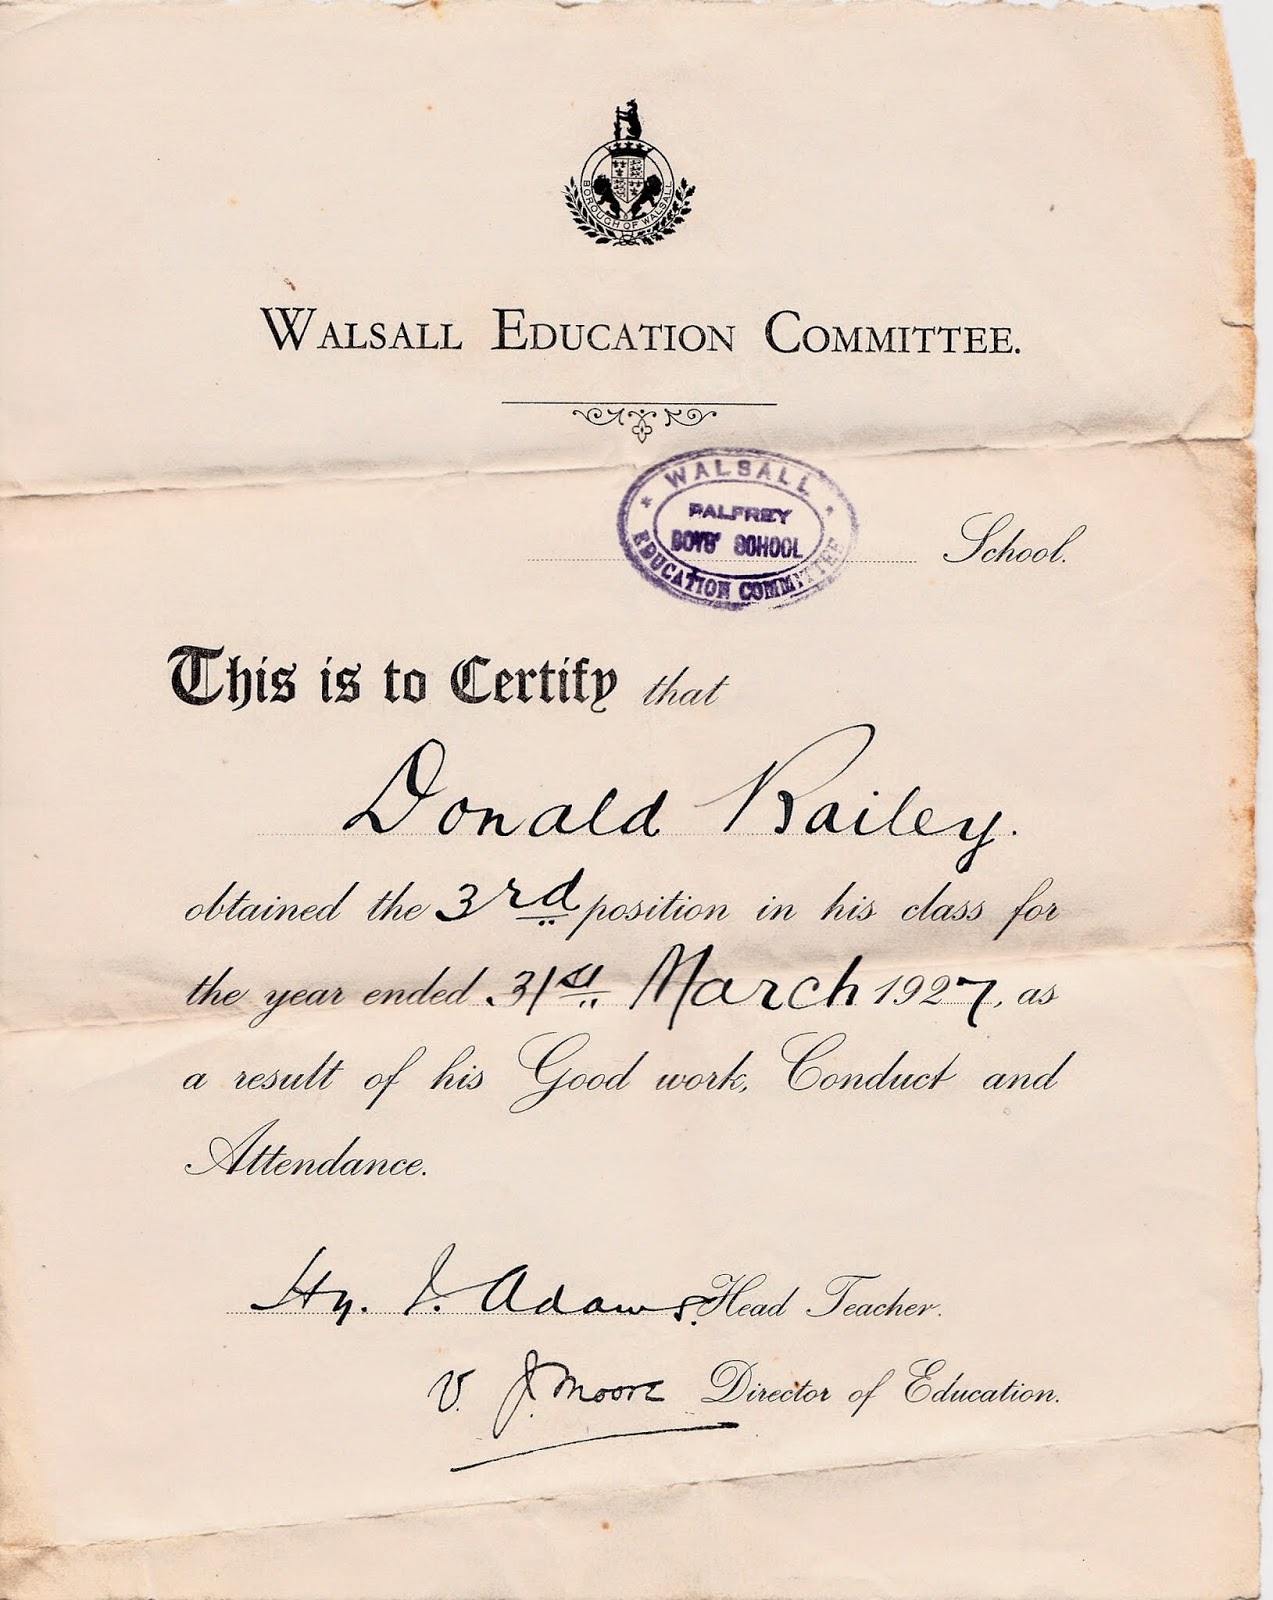 BOROUGH OF WALSALL
WALSALL EDUCATION COMMITTEE.
WALSALL
PALFREY
BOYS' SCHOOL
EDUCATION COMMITTEE
School.
This is to Certify that
Donald Railey.
obtained the 3rd position in his class for
the year ended 31st March 1927, as
a result of his Good work, Conduct and
Attendance.
Hy. J. Adams. Head Teacher.
V. J. Moore Director of Education.